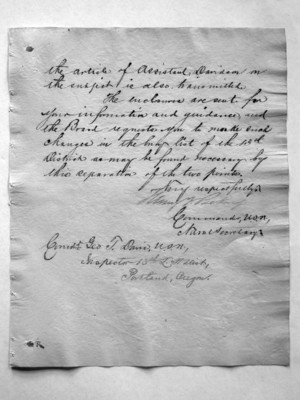 the article of Assistant Davison on
the subject is also transmitted.
The inclosures are sent for
your information and guidance, and
the Board requests you to make such
changes in the buoy list of the 13th
District as may be found necessary by
this separation of the two points.
Very respectfully,
Commander, U.S.N.,
Naval Secretary.
Comdr. Geo. T. Davis, U.S.N.,
Inspector 13th L.H. District,
Portland, Oregon.